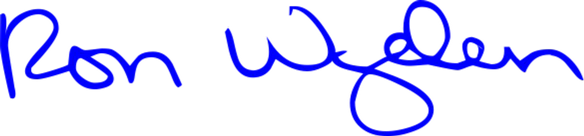 Ron Wyden